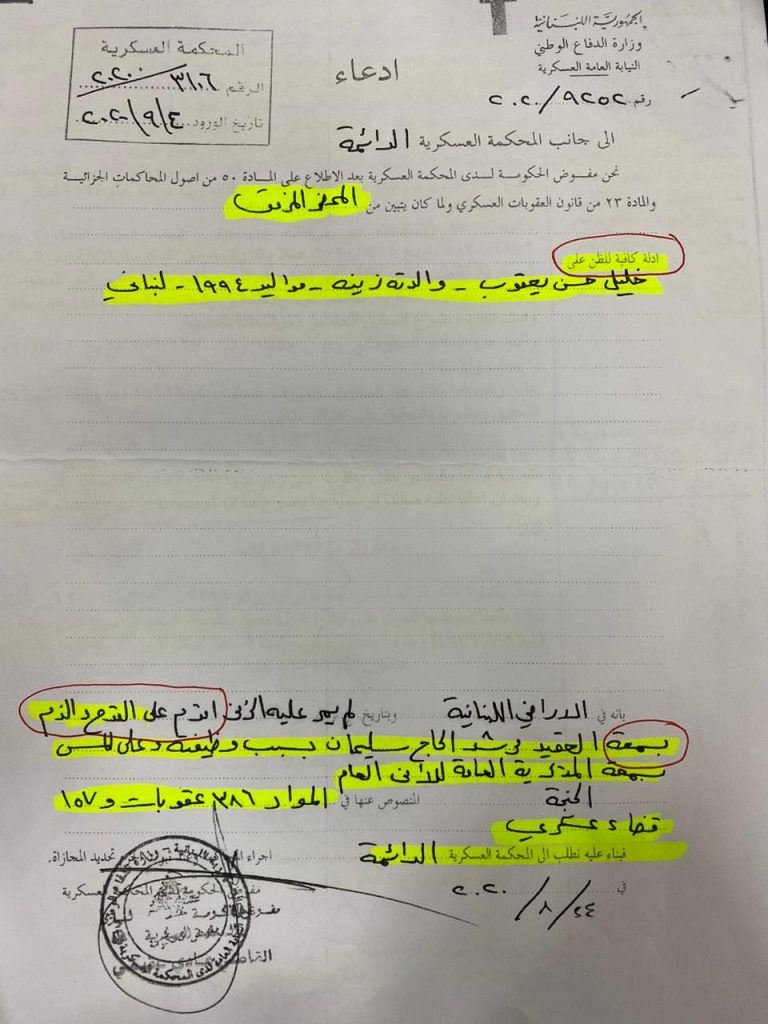 الجمهورية اللبنانية
وزارة الدفاع الوطني
النيابة العامة العسكرية
رقم ٩٢٥٢/٢٠٢٠
المحكمة العسكرية
الرقم ٣١٠٦/٢٠٢٠
تاريخ الورود ٤/٩/٢٠٢٠
ادعاء
الى جانب المحكمة العسكرية الدائمة
نحن مفوض الحكومة لدى المحكمة العسكرية بعد الاطلاع على المادة ٥٠ من اصول المحاكمات الجزائية
والمادة ٢٣ من قانون العقوبات العسكري ولما كان يتبين من المحضر المرفق
ادلة كافية للظن على
خليل حسن يعقوب - والدته زينه - مواليد ١٩٩٤ - لبناني
بانه في الاراضي اللبنانية وبتاريخ لم يمر عليه الزمن اقدم على القدح والذم
بسمعة العقيد مرشد الحاج سليمان بسبب وظيفته وعلى المس
بسمعة المديرية العامة للامن العام
الجنحة المنصوص عنها في المواد ٣٨٦ عقوبات و ١٥٧
قضاء عسكري
فبناء عليه نطلب الى المحكمة العسكرية الدائمة
اجراء تحديد المجازاة.
في ٢٤/٨/٢٠٢٠
مفوض الحكومة لدى المحكمة العسكرية
القاضي